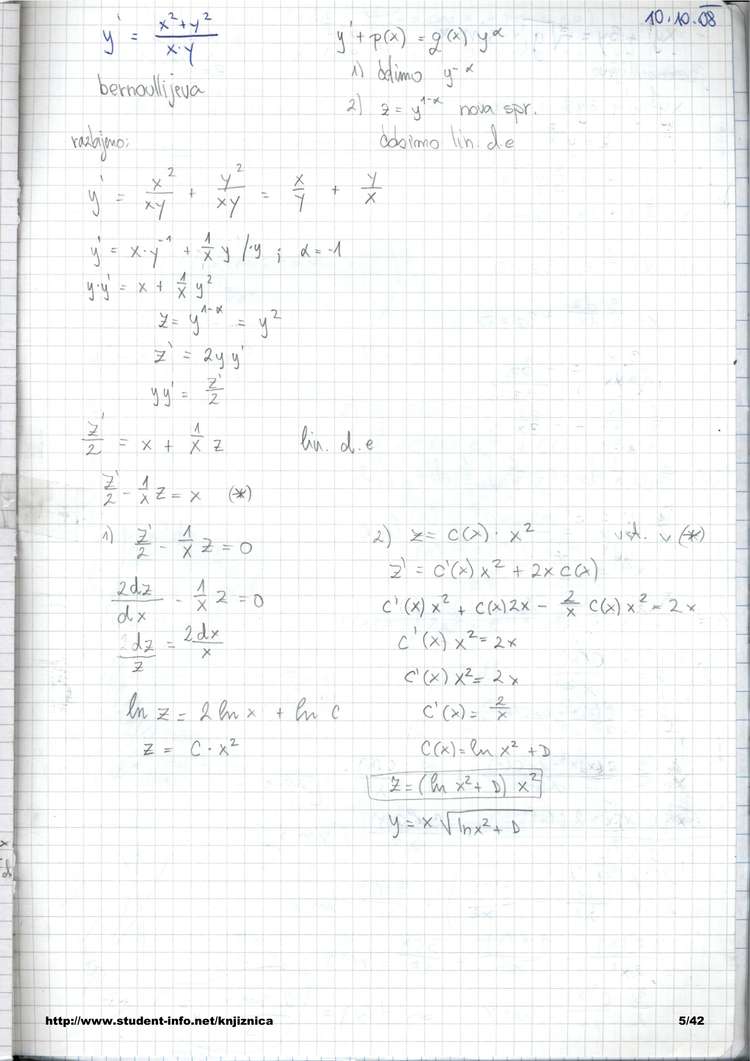 10.10.08
y' = \frac{x^2+y^2}{x \cdot y}
bernoullijeva
y' + p(x) = g(x) y^α
1) y^{-α}
2) z = y^{1-α} nova spr.
dobimo lin. d.e
razbijemo:
y' = \frac{x^2}{xy} + \frac{y^2}{xy} = \frac{x}{y} + \frac{y}{x}
y' = x \cdot y^{-1} + \frac{1}{x} y /\cdot y ; α = -1
y \cdot y' = x + \frac{1}{x} y^2
z = y^{1-α} = y^2
z' = 2y y'
yy' = \frac{z'}{2}
\frac{z'}{2} = x + \frac{1}{x} z lin. d.e
\frac{z'}{2} - \frac{1}{x} z = x (*)
1) \frac{z'}{2} - \frac{1}{x} z = 0
\frac{2dz}{dx} - \frac{1}{x} z = 0
\frac{dz}{z} = \frac{2dx}{x}
ln z = 2 ln x + ln C
z = C \cdot x^2
2) z = C(x) \cdot x^2 vst. v (*)
z' = C'(x) x^2 + 2x C(x)
C'(x) x^2 + C(x) 2x - \frac{2}{x} C(x) x^2 = 2x
C'(x) x^2 = 2x
C'(x) x^2 = 2x
C'(x) = \frac{2}{x}
C(x) = ln x^2 + D
z = (ln x^2 + D) x^2
y = x \sqrt{ln x^2 + D}
http://www.student-info.net/knjiznica
5/42